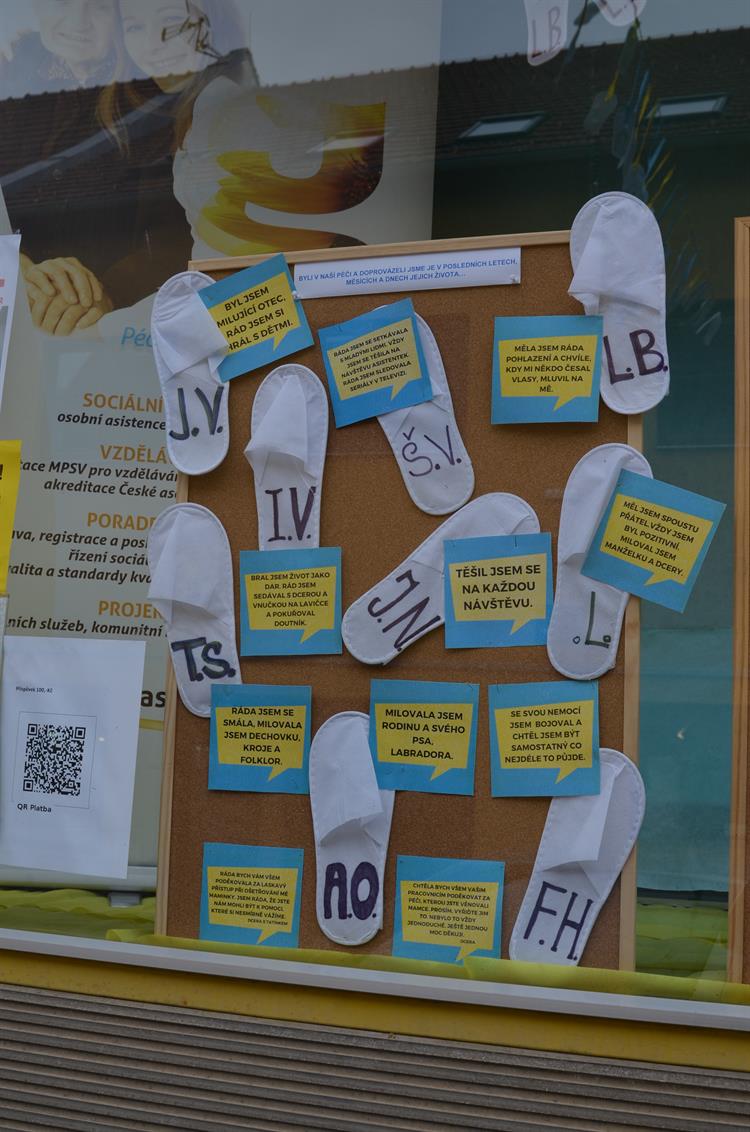 L.B.
BYLI V NAŠÍ PÉČI A DOPROVÁZELI JSME JE V POSLEDNÍCH LETECH,
MĚSÍCÍCH A DNECH JEJICH ŽIVOTA...
BYL JSEM
MILUJÍCÍ OTEC.
RÁD JSEM SI
HRÁL S DĚTMI.
J.V.
RÁDA JSEM SE SETKÁVALA
S MLADÝMI LIDMI. VŽDY
JSEM SE TĚŠILA NA
NÁVŠTĚVU ASISTENTEK.
RÁDA JSEM SLEDOVALA
SERIÁLY V TELEVIZI.
Š.V.
MĚLA JSEM RÁDA
POHLAZENÍ A CHVÍLE,
KDY MI NĚKDO ČESAL
VLASY, MLUVIL NA
MĚ.
L.B.
I.V.
MĚL JSEM SPOUSTU
PŘÁTEL.VŽDY JSEM
BYL POZITIVNÍ.
MILOVAL JSEM
MANŽELKU A DCERY.
.L.
BRAL JSEM ŽIVOT JAKO
DAR. RÁD JSEM
SEDÁVAL S DCEROU A
VNUČKOU NA LAVIČCE
A POKUŘOVAL
DOUTNÍK.
J.N.
TĚŠIL JSEM SE
NA KAŽDOU
NÁVŠTĚVU.
T.S.
RÁDA JSEM SE
SMÁLA, MILOVALA
JSEM DECHOVKU,
KROJE A
FOLKLOR.
MILOVALA JSEM
RODINU A SVÉHO
PSA,
LABRADORA.
SE SVOU NEMOCÍ
JSEM BOJOVAL A
CHTĚL JSEM BÝT
SAMOSTATNÝ CO
NEJDÉLE TO PŮJDE.
A.O.
F.H.
RÁDA BYCH VÁM VŠEM
PODĚKOVALA ZA LASKAVÝ
PŘÍSTUP PŘI OŠETŘOVÁNÍ MÉ
MAMINKY. JSEM RÁDA, ŽE JSTE
NÁM MOHLI BÝT K POMOCI,
KTERÉ SI NESMÍRNĚ VÁŽÍME.
DCERA S TATÍNKEM
CHTĚLA BYCH VŠEM VAŠIM
PRACOVNICÍM PODĚKOVAT ZA
PÉČI, KTEROU JSTE VĚNOVALI
MAMCE. PROSÍM, VYŘIĎTE JIM
TO. NEBYLO TO VŽDY
JEDNODUCHÉ. JEŠTĚ JEDNOU
MOC DĚKUJI.
DCERA
Péč
SOCIÁLNÍ
osobní asistence
VZDĚLÁ
tace MPSV pro vzděláván
akreditace České as
PORADE
ava, registrace a pos
řízení sociál
valita a standardy kva
PROJEK
ních služeb, komunitní
as
Příspěvek 100,-Kč
QR Platba